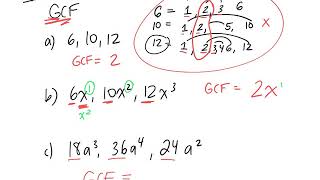 GCF
a) 6, 10, 12
GCF = 2
6 = 1, 2, 3 6
10 = 1, 2, 5, 10
12 = 1, 2 3 4 6, 12
x
b) 6x, 10x², 12x³
1
x²
GCF = 2x¹
c) 18a³, 36a⁴, 24a²
GCF =